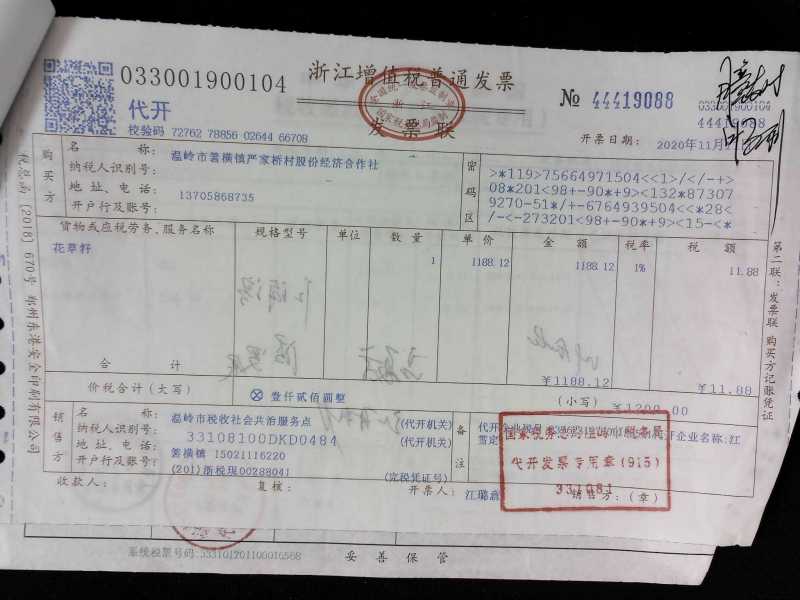 033001900104
浙江增值税普通发票
发票联
代开
校验码 72762 78856 02644 66708
№ 44419088
033001900104
44419088
开票日期:
2020年11月
购买方
名 称:
温岭市箬横镇严家桥村股份经济合作社
纳税人识别号:
地 址、电 话:
13705868735
开户行及账号:
密码区
>*119>75664971504<<1>/</-+>
08*201<98+-90*+9><132*87307
9270-51*/+-6764939504<<*28<
/-<-273201<98+-90*+9><15-<*
货物或应税劳务、服务名称 规格型号 单位 数量 单价 金额 税率 税额
花草籽 1 1188.12 1188.12 1% 11.88
合 计 ¥1188.12 ¥11.88
价税合计(大写) ⊗ 壹仟贰佰圆整 (小写) ¥1200.00
销售方
名 称:
温岭市税收社会共治服务点 (代开机关)
纳税人识别号:
33108100DKD0484 (代开机关)
地址、电话:
箬横镇 15021116220
开户行及账号:
(201)浙税现00288041 (完税凭证号)
备注
代开企业税号:
代开企业名称:江
国家税务总局温岭市税务局
代开发票专用章(915)
331081
收款人:
复核:
开票人:
销售方:(章)
第二联:发票联 购买方记账凭证
税总函〔2018〕670号 郑州东港安全印刷有限公司
系统税票号码:
妥善保管